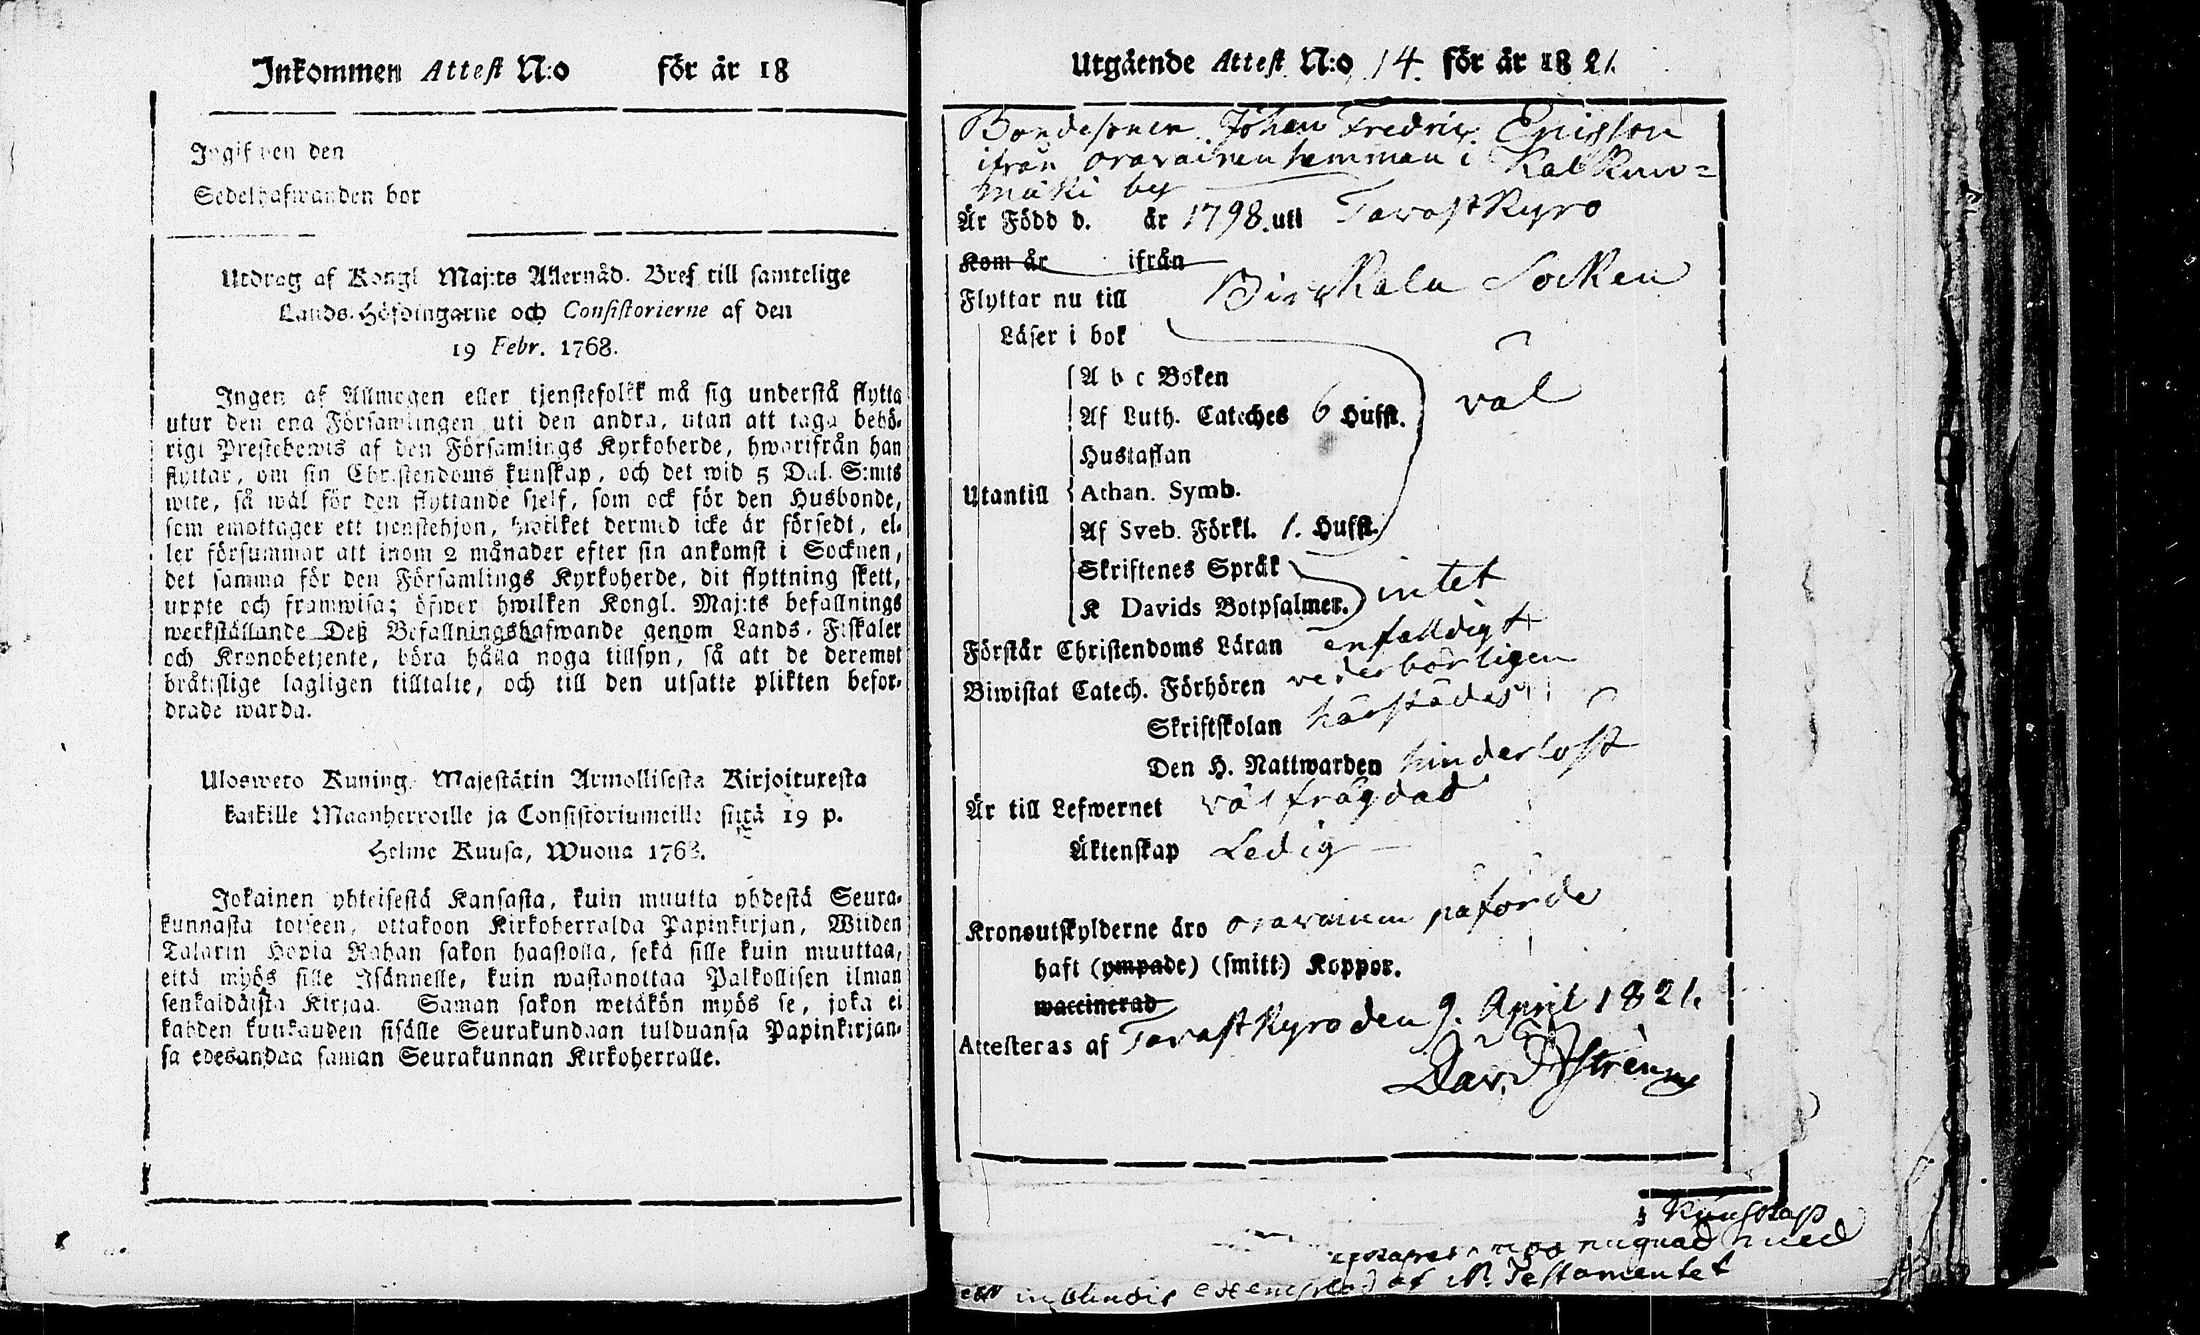 Inkommen Attest N:o för år 18
Ingifwen den
Sedelhafwanden bor
Utdrag af Kongl Maj:ts Allernåd. Bref till samtelige
Lands-Höfdingarne och Consistorierne af den
19 Febr. 1768.
Ingen af Allmogen eller tjenstefolkk må sig understå flytta
utur den ena Församlingen uti den andra, utan att taga behö-
rigt Prestebewis af den Församlings Kyrkoherde, hwarifrån han
flyttar, om sin Christendoms kunskap, och det wid 5 Dal. S:mts
wite, så wäl för den flyttande sjelf, som ock för den Husbonde,
som emottager ett tjenstehjon, hwilket dermed icke är försedt, el-
ler försummar att inom 2 månader efter sin ankomst i Socknen,
det samma för den Församlings Kyrkoherde, dit flyttning skett,
uppte och framwisa; öfwer hwilken Kongl. Maj:ts befallnings
werkställande Deß Befallningshafwande genom Lands-Fiskaler
och Kronobetjente, böra hålla noga tillsyn, så att de deremot
brätislige lagligen tilltalte, och till den utsatte plikten befor-
drade warda.
Ulosweto Kuning. Majestätin Armollisesta Kirjoituxesta
kaikille Maanherroille ja Consistoriumeille siitä 19 p.
Helme Kuusa, Wuona 1768.
Jokainen yhteisestä Kansasta, kuin muutta yhdestä Seura-
kunnasta toiseen, ottakoon Kirkoherralda Papinkirjan, Wiiden
Talarin Hopia Rahan sakon haastolla, sekä sille kuin muuttaa,
että myös sille Isännelle, kuin wastanottaa Palkollisen ilman
senkaldaista Kirjaa. Saman sakon wetäkön myös se, joka ei
kahden kuukauden sisälle Seurakundaan tulduansa Papinkirjan-
sa edesandaa saman Seurakunnan Kirkoherralle.
Utgående Attest N:o 14. för år 1821.
Bondesonen Johan Fredric Ericsson
ifrån Oravainen hemman i Kalkun=
mäki by
Är Född d. år 1798. uti Tavastkyro
Kom år ifrån
Flyttar nu till Birkkala Socken
Läser i bok
A b c Boken
Af Luth. Cateches 6 Hufst. väl
Hustaflan
Utantill Athan. Symb.
Af Sveb. Förkl. 1. Hufst.
Skriftenes Språk
K Davids Botpsalmer. intet
Förstår Christendoms Läran enfalldigt
Biwistat Catech. Förhören vederbörligen
Skriftskolan härstädes
Den H. Nattwarden hinderlöst
Är till Lefwernet välfrägdad
Äktenskap Ledig
Kronoutskylderne äro Oravainen påförde
haft (ympade) (smitt.) Koppor.
waccinerad
Attesteras af Tavastkyro den 9. April 1821.
Dav. Aströng
Kunskap
med
af N. Testamentet